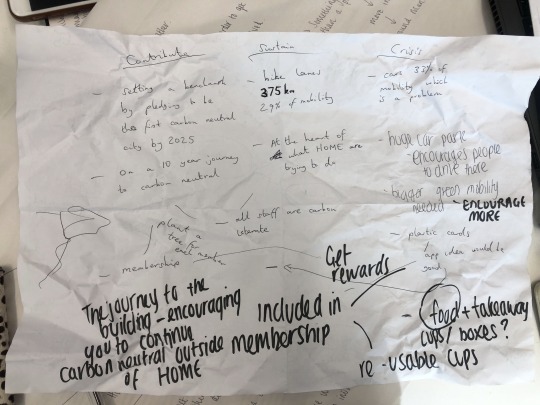 Contribute
- setting a benchmark
by pledging to be
the first carbon neutral
city by 2025
- on a 10 year journey
to carbon neutral
plant a
tree for
each member
- membership
The journey to the
building - encouraging
you to continue
carbon neutral outside
of HOME
Sustain
- bike lanes
375 km
29% of mobility
- At the heart of
what HOME are
trying to do
- all staff are carbon
literate
-
Get
rewards
included in
membership
Crisis
- cars 33% of
mobility which
is a problem
- huge car park
encourages people
to drive there
- bigger green mobility
needed - ENCOURAGE
MORE
- plastic cards
app idea would be
good
- food + takeaway
cups / boxes?
re-usable cups